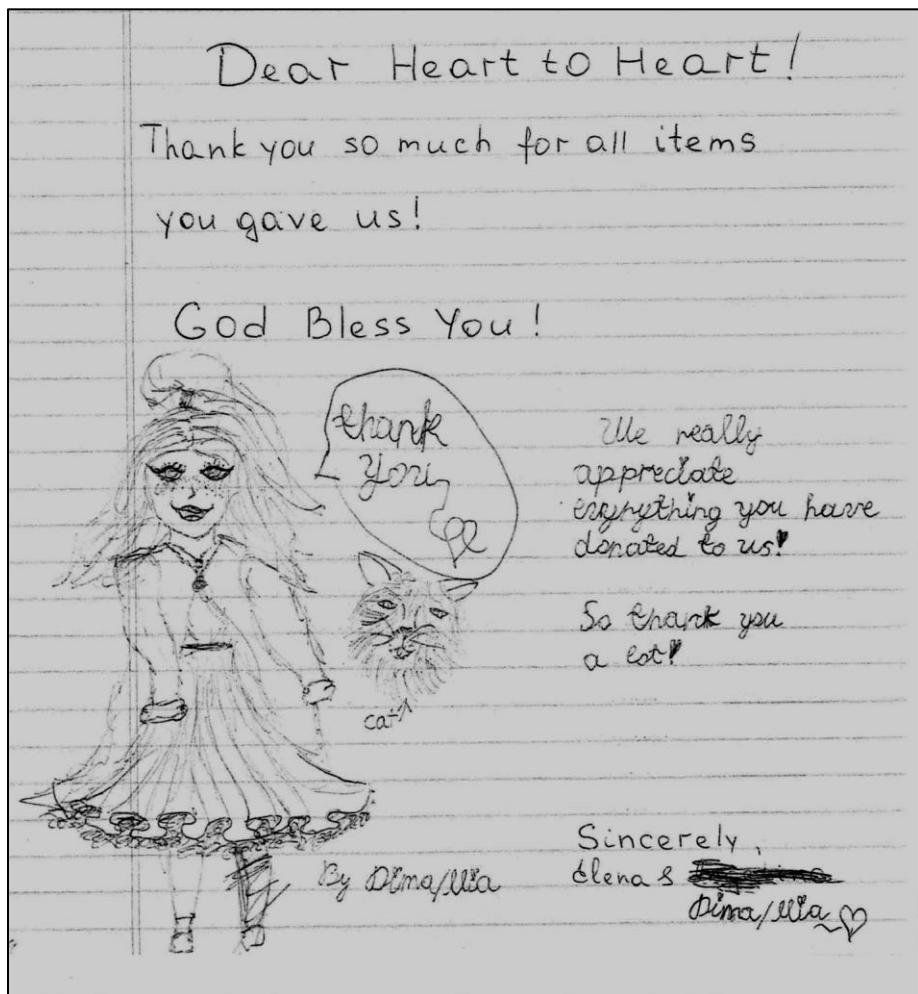 Dear Heart to Heart!
Thank you so much for all items
you gave us!
God Bless You!
thank
you
We really
appreciate
evyrything you have
donated to us!
So thank you
a lot!
cat
By Dima/Mia
Sincerely,
Elena &
Dima/Mia